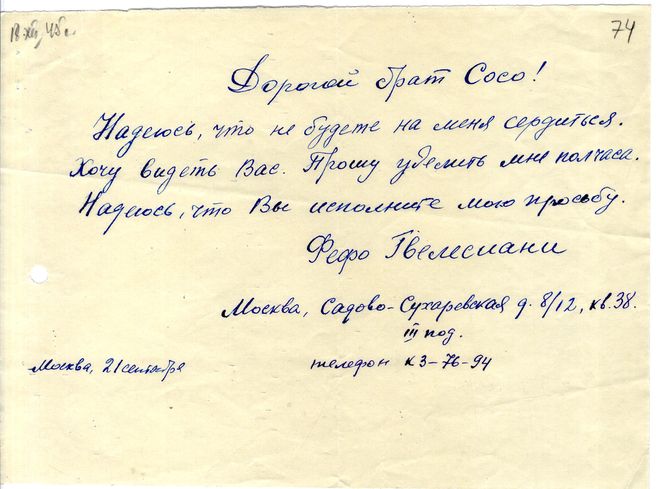 18 XII 45 г. 74
Дорогой брат Сосо!
Надеюсь, что не будете на меня сердиться.
Хочу видеть Вас. Прошу уделить мне полчаса.
Надеюсь, что Вы исполните мою просьбу.
Фефо Гвелесиани
Москва, Садово-Сухаревская д. 8/12, кв. 38.
III под.
Москва, 21 сентября телефон К 3-76-94